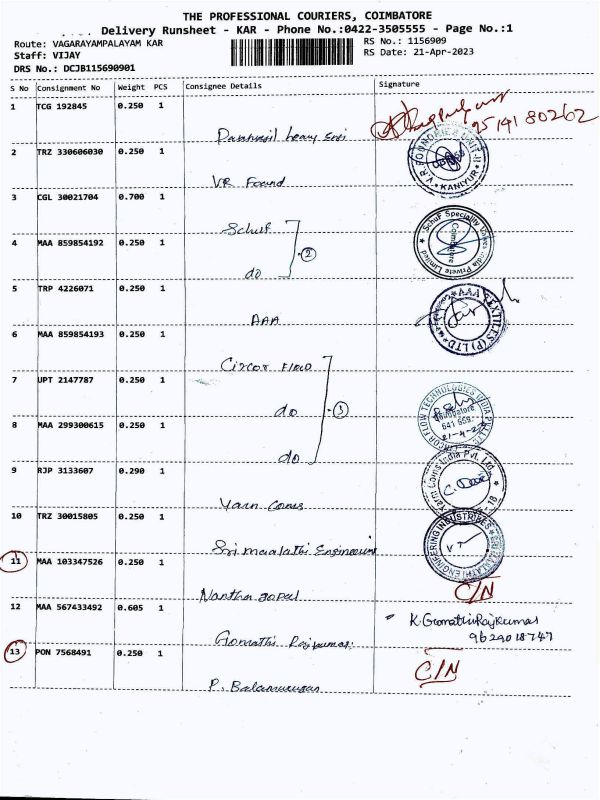 THE PROFESSIONAL COURIERS, COIMBATORE
Delivery Runsheet - KAR - Phone No.:0422-3505555 - Page No.:1
Route: VAGARAYAMPALAYAM KAR
RS No.: 1156909
Staff: VIJAY
RS Date: 21-Apr-2023
DRS No.: DCJB115690901
S No Consignment No Weight PCS Consignee Details Signature
1 TCG 192845 0.250 1
95141 80262
2 TRZ 330606030 0.250 1
VR Found
V.R. FOUNDRIES UNIT-II KANIYUR
3 CGL 30021704 0.700 1
Schuf
4 MAA 859854192 0.250 1
2
do
Schuf Speciality Valves India Private Limited Coimbatore
5 TRP 4226071 0.250 1
AAA
AAA TEXTILES (P) LTD
6 MAA 859854193 0.250 1
Circor Flow
7 UPT 2147787 0.250 1
do
3
8 MAA 299300615 0.250 1
do
CIRCOR FLOW TECHNOLOGIES INDIA PVT LTD Coimbatore 641 659
21-4-23
9 RJP 3133607 0.290 1
Yarn Cones
Yarn Cones India Pvt. Ltd.
10 TRZ 30015805 0.250 1
Sri Maalathi Engineering
SRI MALATHI ENGINEERING INDUSTRIES
11 MAA 103347526 0.250 1
Nantha gopal
C/N
12 MAA 567433492 0.605 1
Gomathi Rajkumar
K. Gomathi Raj Kumar
9629018747
13 PON 7568491 0.250 1
P. Balamurugan
C/N